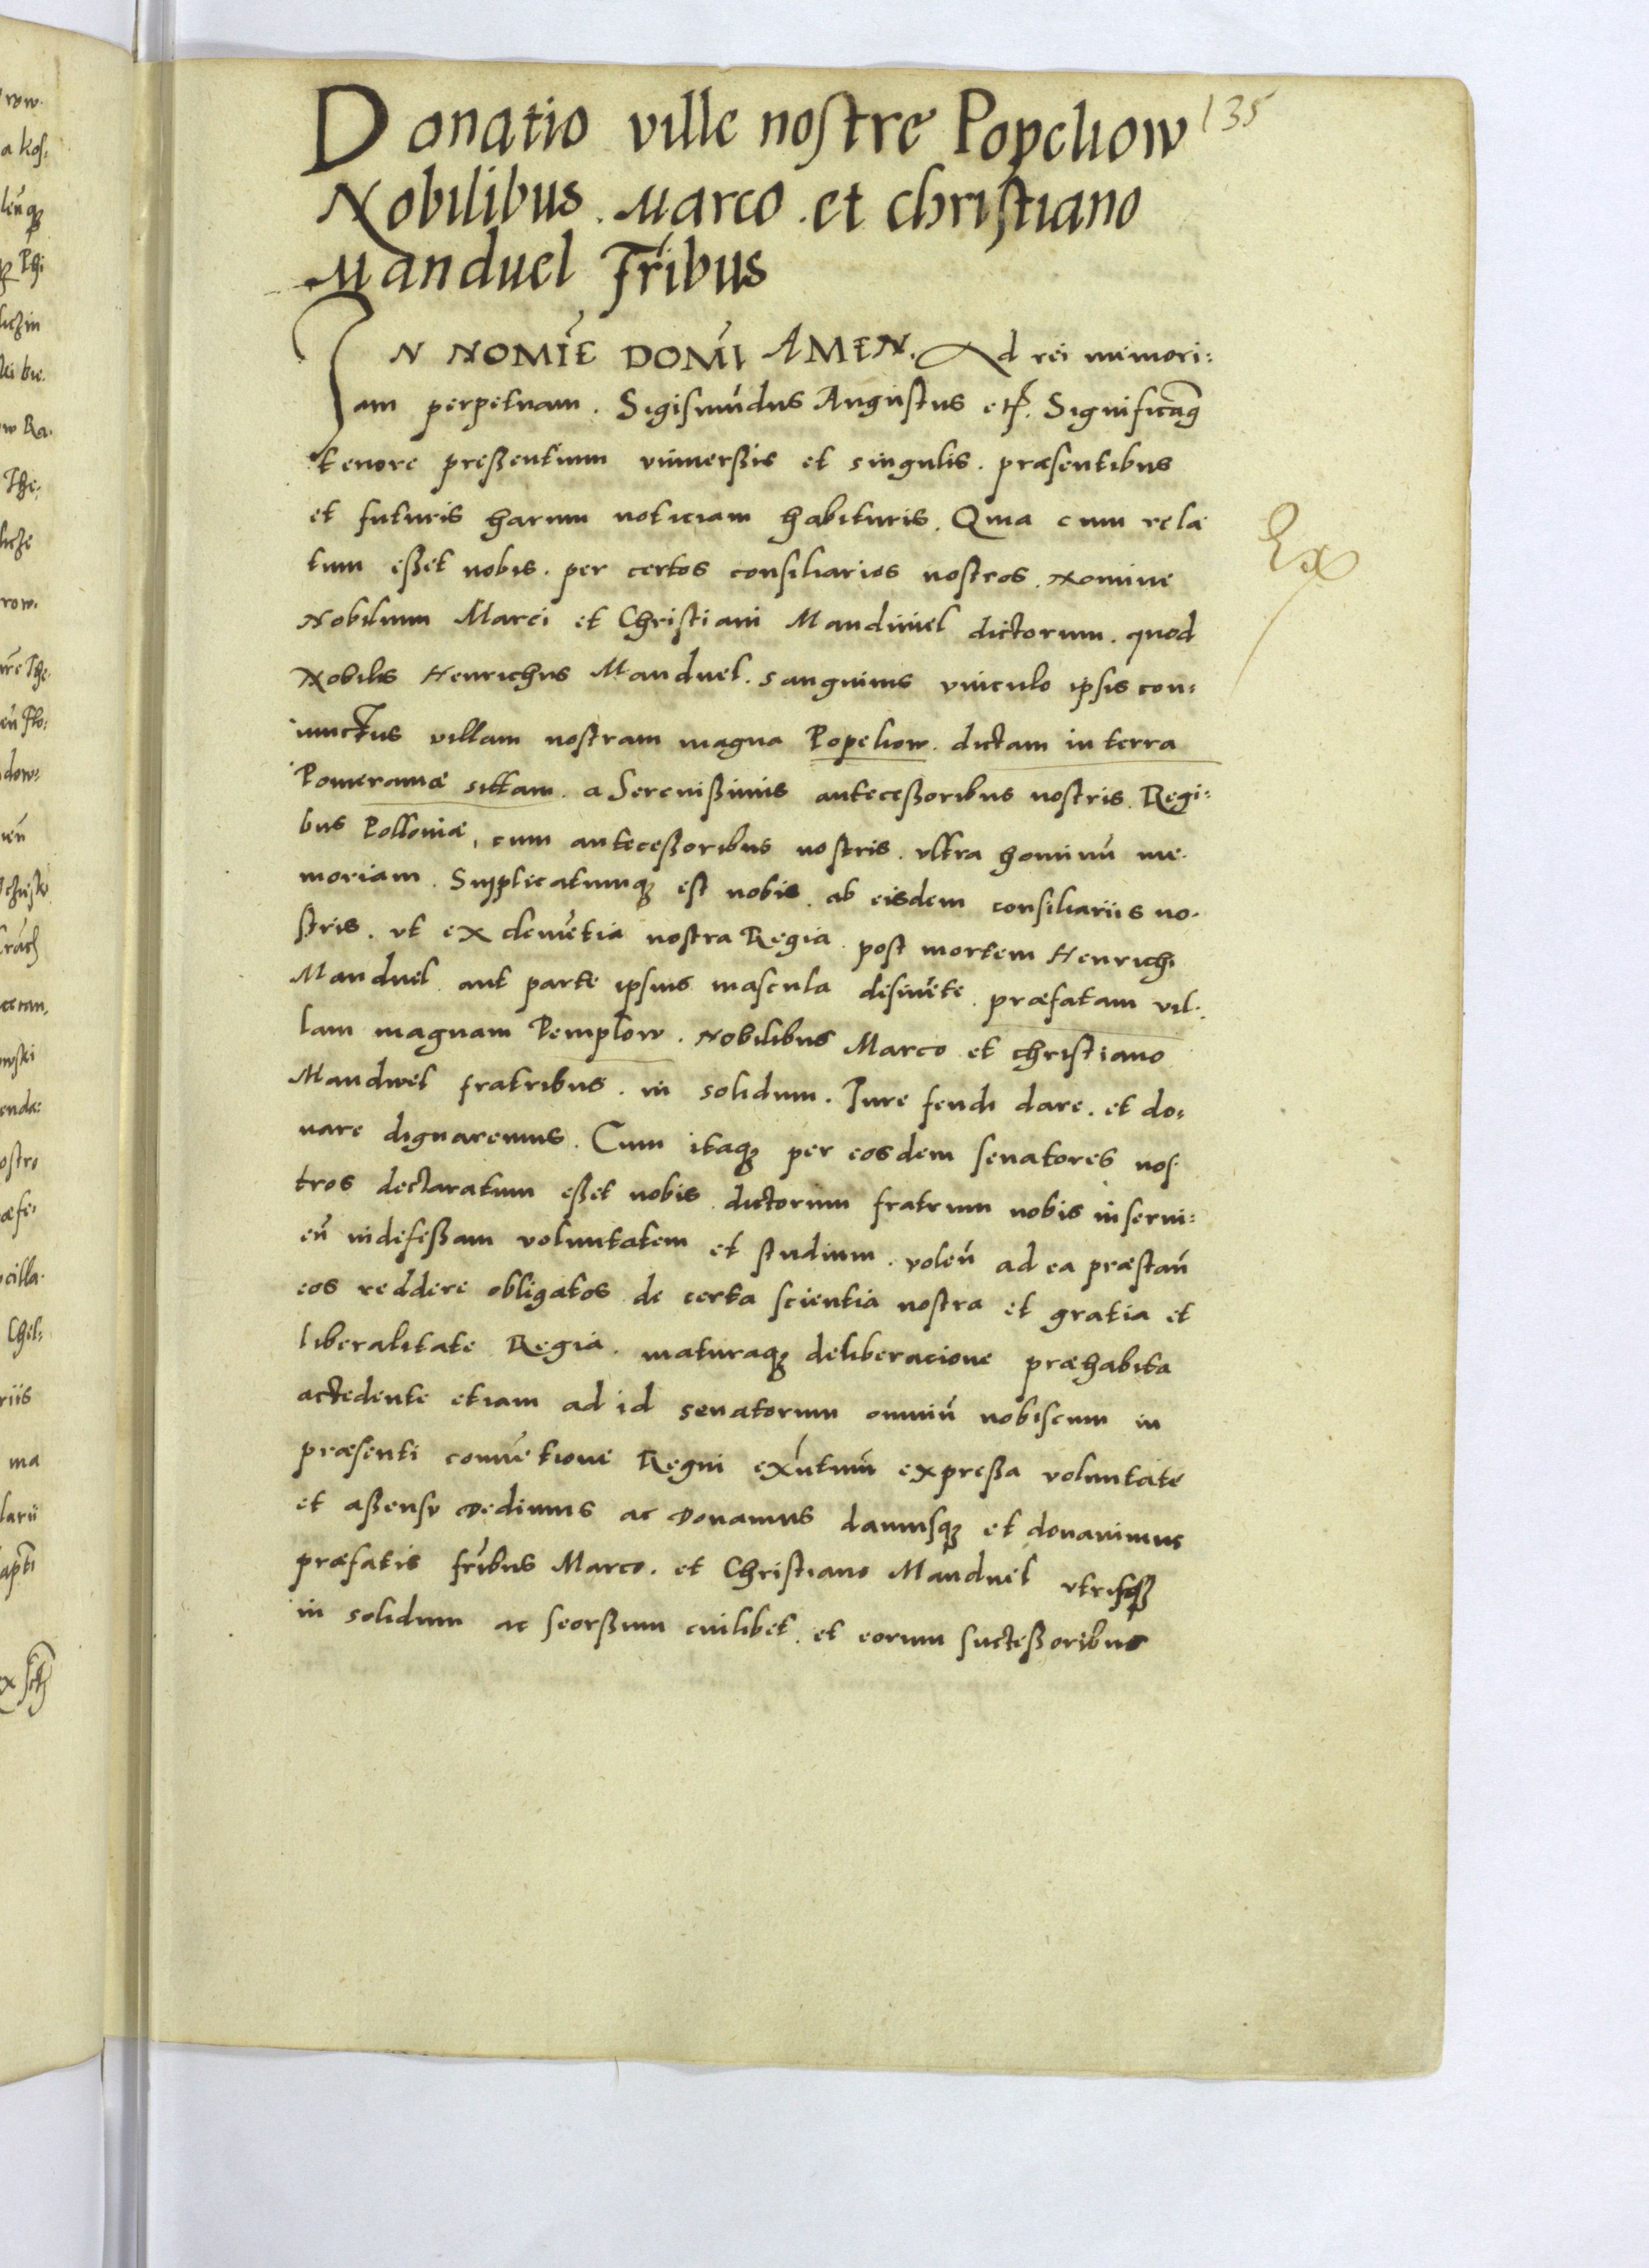 135
Donatio ville nostre Popelıow
Nobilibus . Marco . et christiano
Manduel Fr̃ibus
IN NOMĨE DOMĨ AMEN. Ad rei memori:
am perpetuam . Sigismũdus Augustus etc̃. Significamꝗ
tenore preßentium vniuerßis et singulis . præsentibus
et futuris harum noticiam habituris. Quia cum rela
tum eßet nobis . per certos consiliarios nostros . nomine
Nobilium Marci et Christiani Manduuel dictorum . quod
Nobilis Henrichus Manduel . sanguinis vinculo ipsis con:
iunctus villam nostram magna Popelıow . dictam in terra
Pomeraniæ sittam . a Serenißimis anteceßoribus nostris . Regi:
bus Polloniæ, cum anteceßoribus nostris . vltra hominũ me.
moriam . Supplicatumq3 est nobis . ab eisdem consiliariis no.
stris . vt ex clemẽtia nostra Regia . post mortem Henrichi
Manduel aut parte ipsius mascula desinẽte . præfatam vil.
lam magnam Pemplow . Nobilibus Marco et christiano
Manduel fratribus . in solidum . Jure feudi dare . et do:
nare dignaremus . Cum itaq3 per eosdem senatores nos
tros declaratum eßet nobis dictorum fratrum nobis inserui:
eñ indefeßam voluntatem et studium . voleñ ad ea præstañ
eos reddere obligatos de certa scientia nostra et gratia et
liberalitate Regia . maturaq3 deliberacione præhabita
accedente etiam ad id senatorum omniũ nobiscum in
præsenti conuẽtione Regni exñtiuũ expreßa voluntate
et aßensu Dedimus ac Donamus damusq3 et donauimus
præfatis fr̃ibus Marco . et Christiano Manduel vtrisq3
in solidum ac seorßum cuilibet . et eorum succeßoribus
Ex